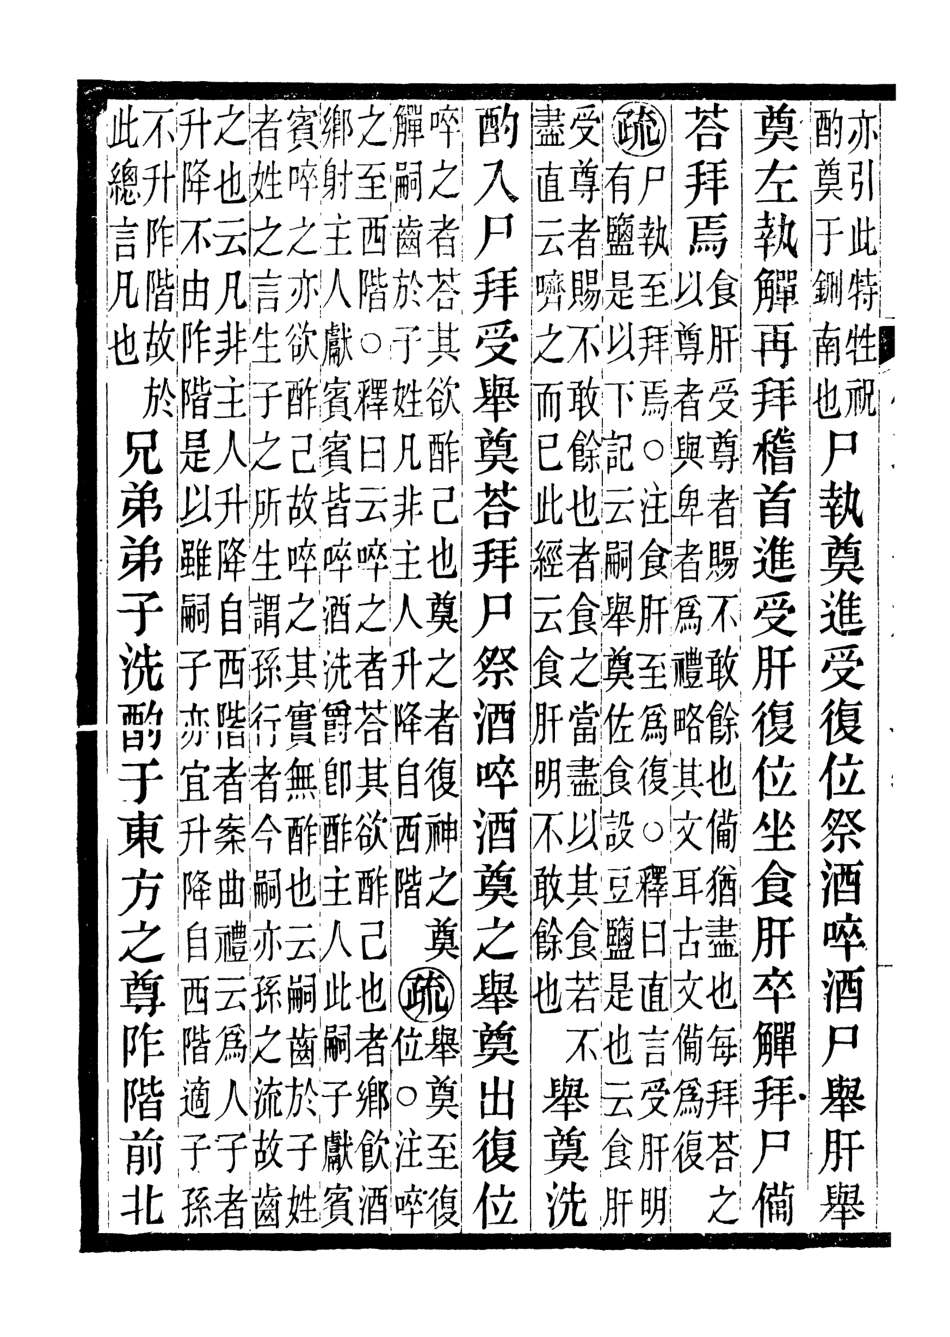 亦引此特牲祝
酌奠于鉶南也
尸執奠進受復位祭酒啐酒尸舉肝舉
奠左執觶再拜稽首進受肝復位坐食肝卒觶拜尸備
荅拜焉
食肝受尊者賜不敢餘也備猶盡也每拜荅之
以尊者與卑者爲禮略其文耳古文備爲復
疏
尸執至拜焉○注食肝至爲復○釋曰直言受肝明
有鹽是以下記云嗣舉奠佐食設豆鹽是也云食肝
受尊者賜不敢餘也者食之當盡以其食若不
盡直云嚌之而已此經云食肝明不敢餘也
舉奠洗
酌入尸拜受舉奠荅拜尸祭酒啐酒奠之舉奠出復位
啐之者荅其欲酢己也奠之者復神之奠
觶嗣齒於子姓凡非主人升降自西階
疏
舉奠至復
位○注啐
之至西階○釋曰云啐之者荅其欲酢己也者鄉飲酒
鄉射主人獻賓賓皆啐酒洗爵卽酢主人此嗣子獻賓
賓啐之亦欲酢己故啐之其實無酢也云嗣齒於子姓
者姓之言生子之所生謂孫行者今嗣亦孫之流故齒
之也云凡非主人升降自西階者案曲禮云爲人子者
升降不由阼階是以雖嗣子亦宜升降自西階適子孫
不升阼階故於
此總言凡也
兄弟弟子洗酌于東方之尊阼階前北